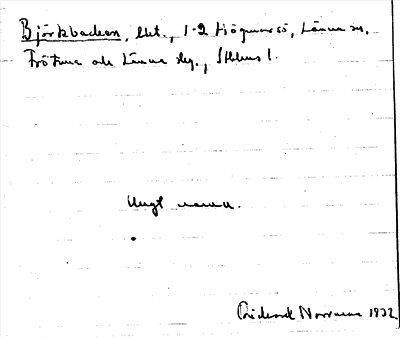 Björkbacken, lht., 1-2 Högmarsö, Länna sn,
Frötuna och Länna skg., Sthlms l.
Ungt namn.
Rickard Norrman 1932